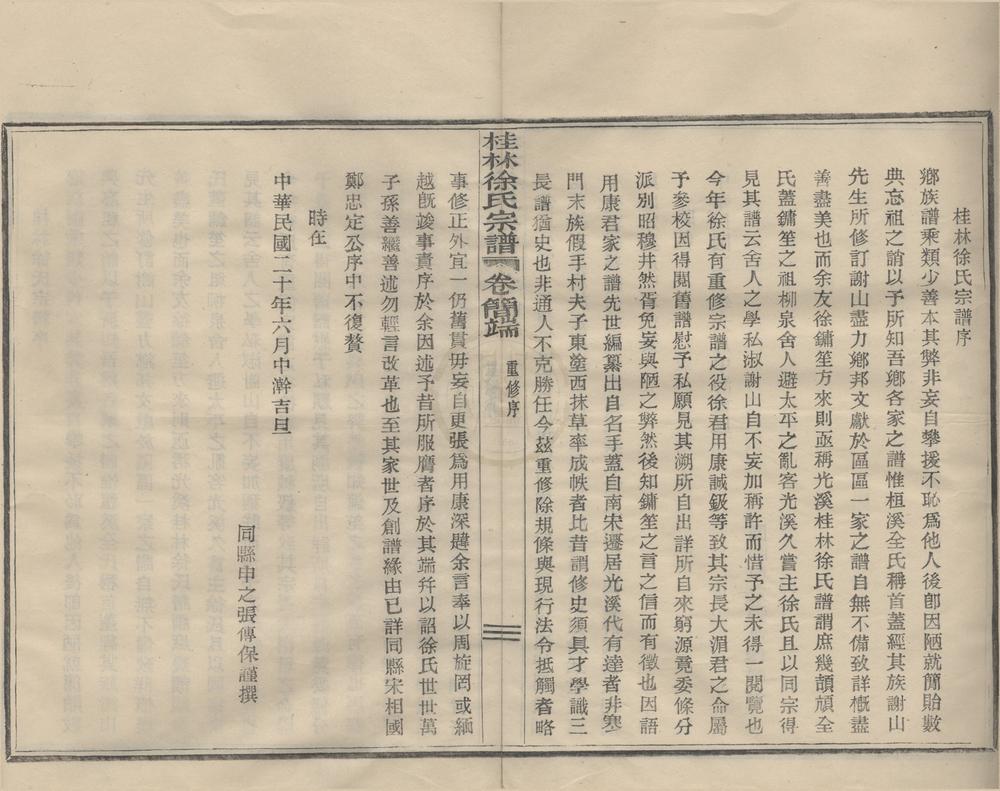 桂林徐氏宗譜序
鄉族譜乘類少善本其弊非妄自攀援不恥爲他人後卽因陋就簡貽數
典忘祖之誚以予所知吾鄉各家之譜惟桓溪全氏稱首蓋經其族謝山
先生所修訂謝山盡力鄉邦文獻於區區一家之譜自無不備致詳槪盡
善盡美也而余友徐鏞笙方來則亟稱光溪桂林徐氏譜謂庶幾頡頏全
氏蓋鏞笙之祖柳泉舍人避太平之亂客光溪久嘗主徐氏且以同宗得
見其譜云舍人之學私淑謝山自不妄加稱許而惜予之未得一閱覽也
今年徐氏有重修宗譜之役徐君用康誠鈒等致其宗長大湄君之命屬
予參校因得閱舊譜慰予私願見其溯所自出詳所自來窮源竟委條分
派別昭穆井然胥免妄與陋之弊然後知鏞笙之言之信而有徵也因語
用康君家之譜先世編纂出自名手蓋自南宋遷居光溪代有達者非寒
門末族假手村夫子東塗西抹草率成帙者比昔謂修史須具才學識三
長譜猶史也非通人不克勝任今茲重修除規條與現行法令抵觸者略
桂林徐氏宗譜 卷簡端 重修序 二
事修正外宜一仍舊貫毋妄自更張爲用康深韙余言奉以周旋罔或緬
越旣竣事責序於余因述予昔所服膺者序於其端幷以詔徐氏世世萬
子孫善繼善述勿輕言改革也至其家世及創譜緣由已詳同縣宋相國
鄭忠定公序中不復贅
時在
中華民國二十年六月中澣吉旦
同縣申之張傳保謹撰